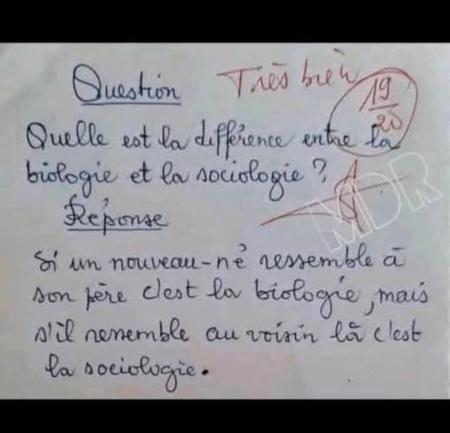 Question
Très bien
19
20
Quelle est la différence entre la
biologie et la sociologie ?
Réponse
Si un nouveau-né ressemble à
son père c'est la biologie, mais
s'il ressemble au voisin là c'est
la sociologie.
MDR